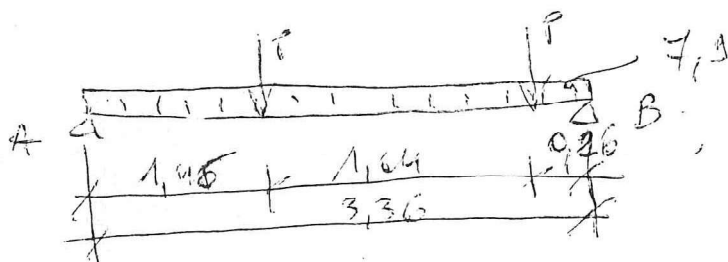 P P
7,9
A B
1,46 1,64 0,26
3,36